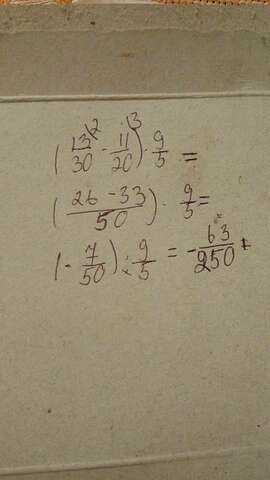 (13/30\2 - 11/20\3) · 9/5 =
(26 - 33/50) · 9/5 =
(- 7/50) · 9/5 = - 63/250